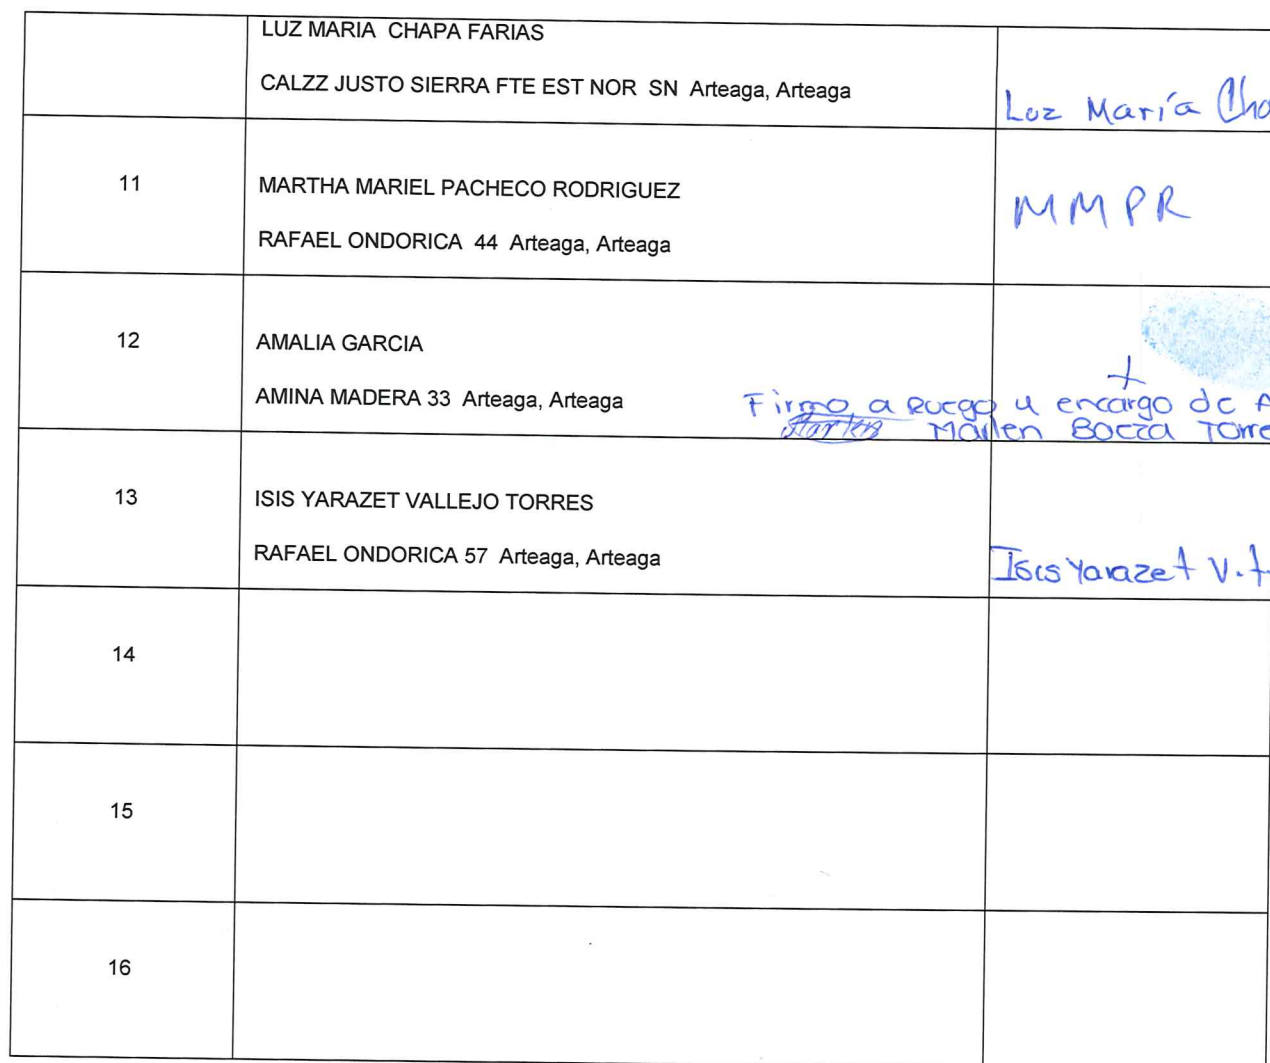 LUZ MARIA CHAPA FARIAS
CALZZ JUSTO SIERRA FTE EST NOR SN Arteaga, Arteaga
Luz María Cha
11
MARTHA MARIEL PACHECO RODRIGUEZ
RAFAEL ONDORICA 44 Arteaga, Arteaga
MMPR
12
AMALIA GARCIA
AMINA MADERA 33 Arteaga, Arteaga
Firmo a ruego y encargo de A
Marlen Torre
13
ISIS YARAZET VALLEJO TORRES
RAFAEL ONDORICA 57 Arteaga, Arteaga
Isis Yarazet V.t.
14
15
16